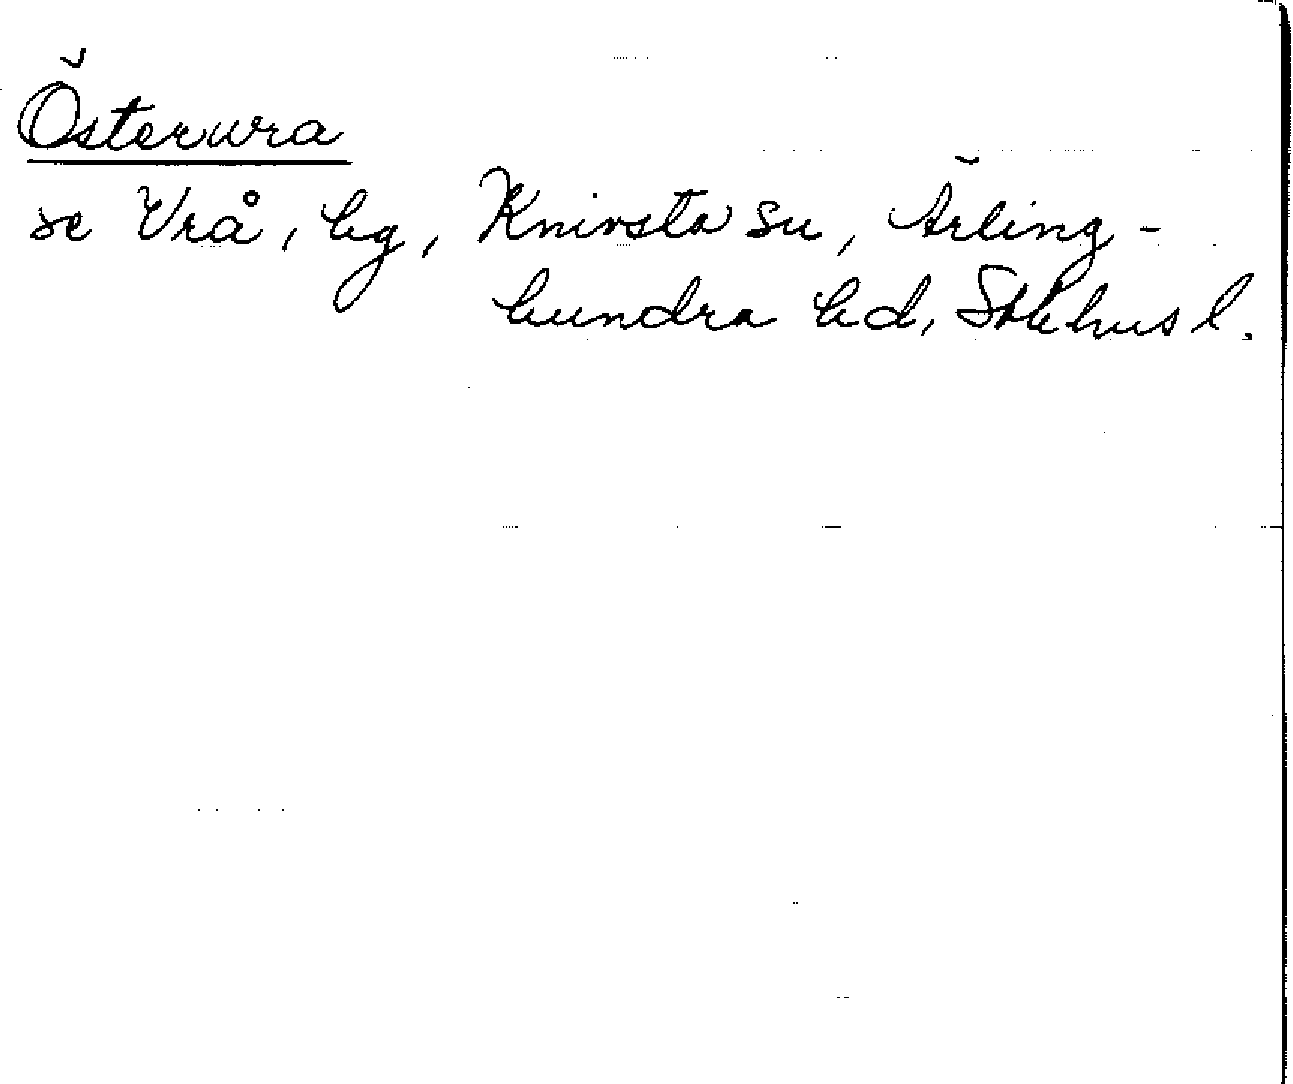 Österwra
se Vrå, by, Knivsta sn, Ärling-
hundra hd, Sthlms l.